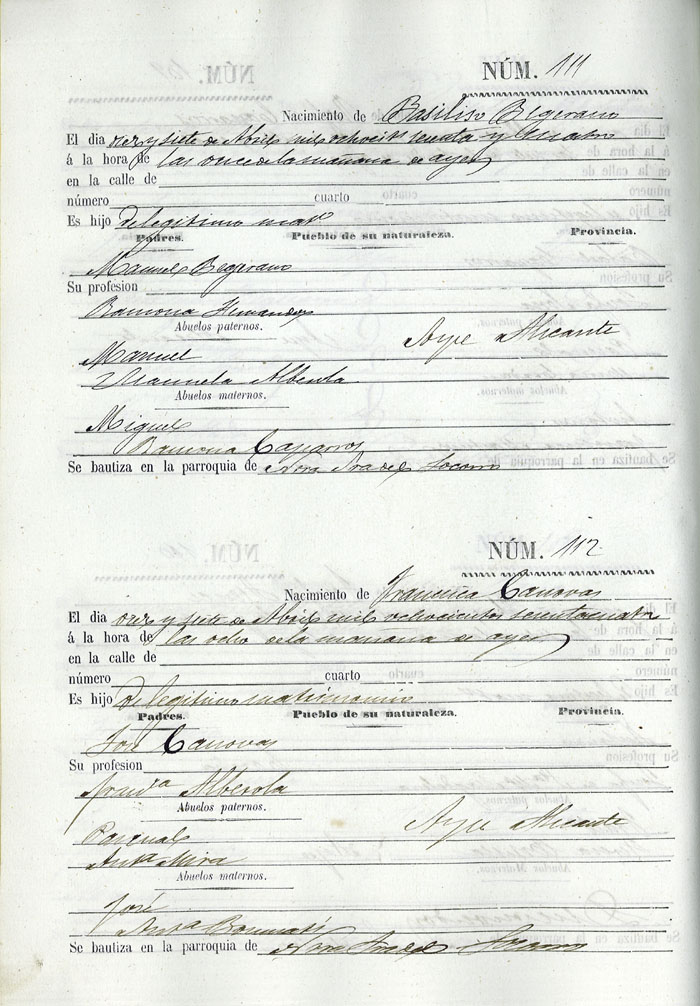 NÚM. 111
Nacimiento de Basiliso Begerano
El dia diez y siete de Abril mil ochocitos sesenta y Cuatro
á la hora de las once de la mañana de ayer
en la calle de
número cuarto
Es hijo de legitimo matº
Padres. Pueblo de su naturaleza. Provincia.
Manuel Begerano
Su profesion
Ramona Hernandez
Abuelos paternos.
Aspe Alicante
Manuel
Manuela Alberola
Abuelos maternos.
Miguel
Ramona Caparros
Se bautiza en la parroquia de Ntra Sra del Socorro
NÚM. 112
Nacimiento de Francisca Canovas
El dia diez y siete de Abril mil ochocientos sesenta cuatro
á la hora de las ocho de la mañana de ayer
en la calle de
número cuarto
Es hijo de legitimo matrimonio
Padres. Pueblo de su naturaleza. Provincia.
José Canovas
Su profesion
Franca Alberola
Abuelos paternos.
Aspe Alicante
Pascual
Anta Mira
Abuelos maternos.
José
Anta Bonmati
Se bautiza en la parroquia de Ntra Sra del Socorro